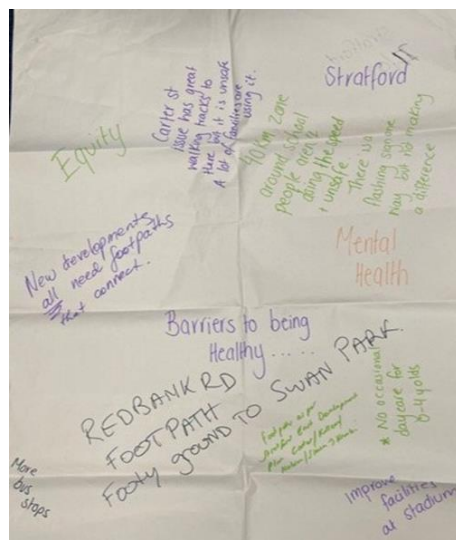 Stratford
Equity
Carter st
issue has great
walking tracks to
there but it is unsafe
A lot of families are
using it.
40km zone
around school
people aren't
doing the speed
+ unsafe
There is a
flashing sign one
way but not making
a difference
New developments
all need footpaths
that connect.
Mental
Health
Barriers to being
Healthy.....
REDBANK RD
FOOTPATH
Footy ground TO SWAN PARK.
* No occasional
daycare for
0-4 yolds
Footpaths as per
Development
Plan
More
bus
stops
Improve
facilities
at stadium